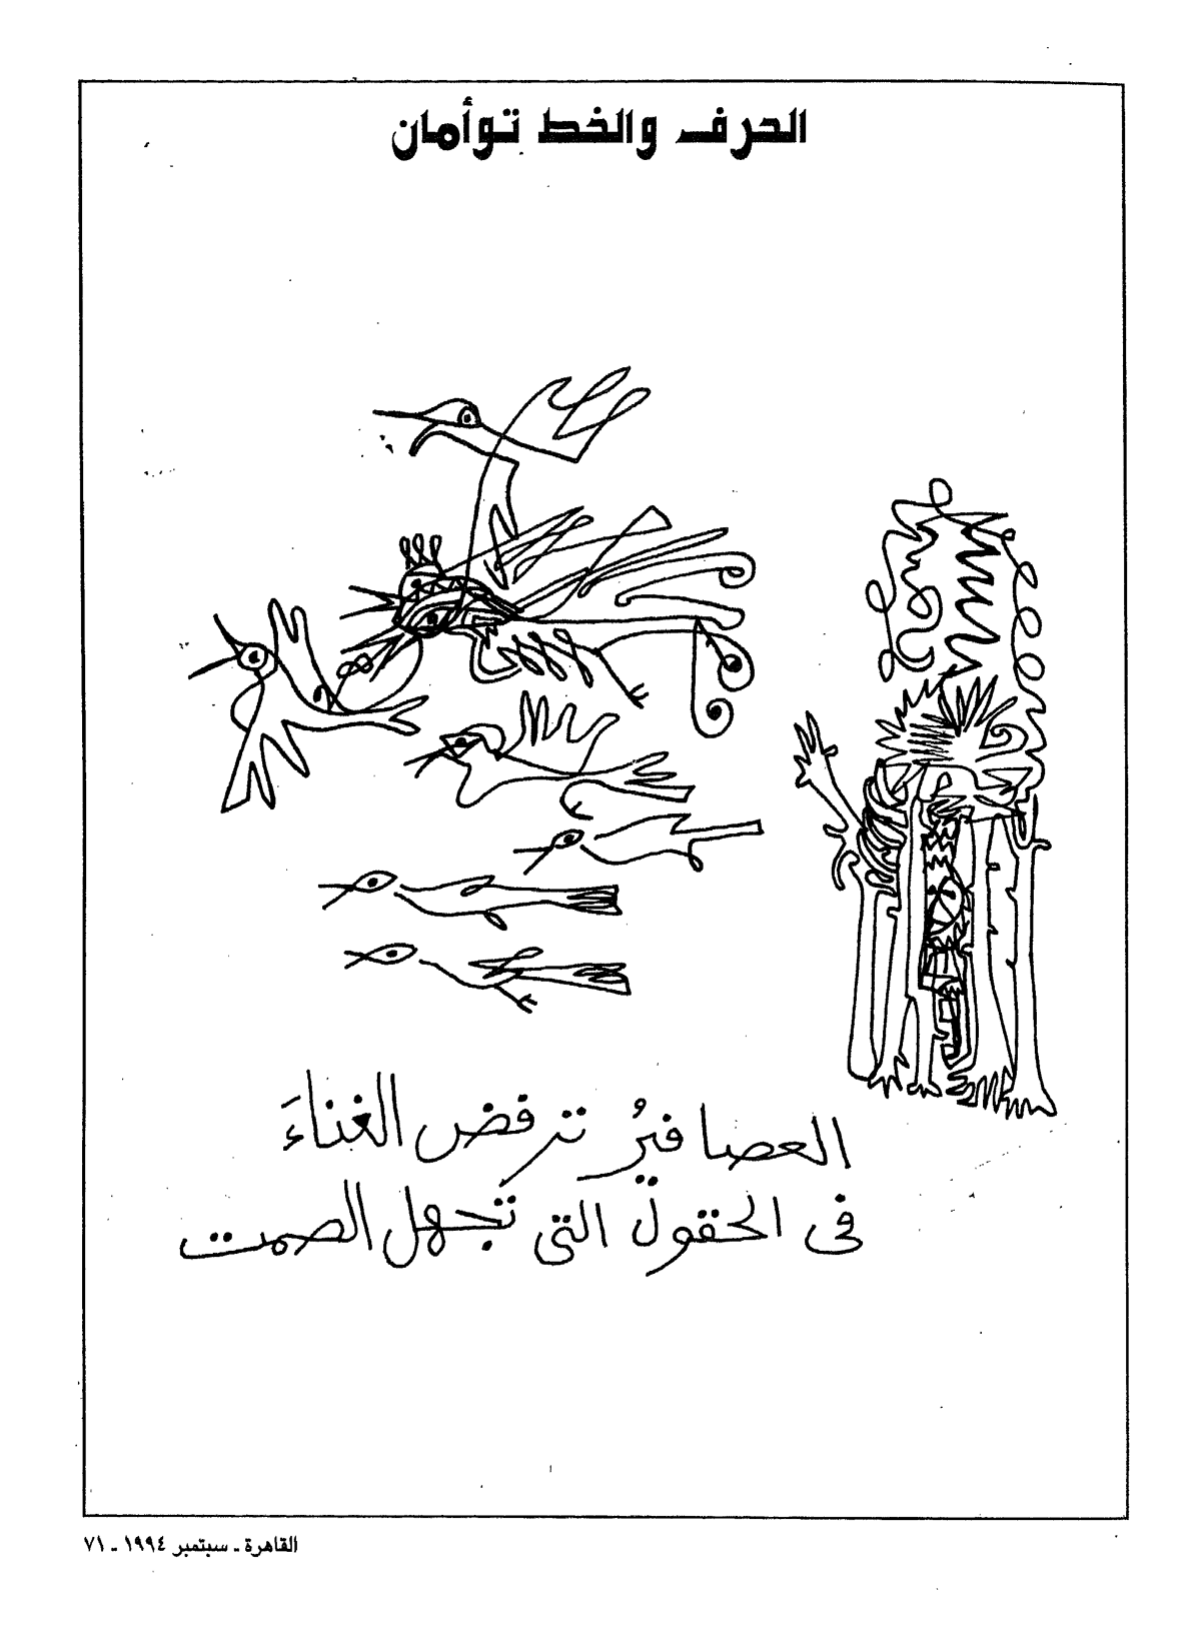 الحرف والخط توأمان
العصافيرُ ترفض الغناءَ
فى الحقول التى تجهل الصمت
القاهرة ـ سبتمبر ١٩٩٤ ـ ٧١